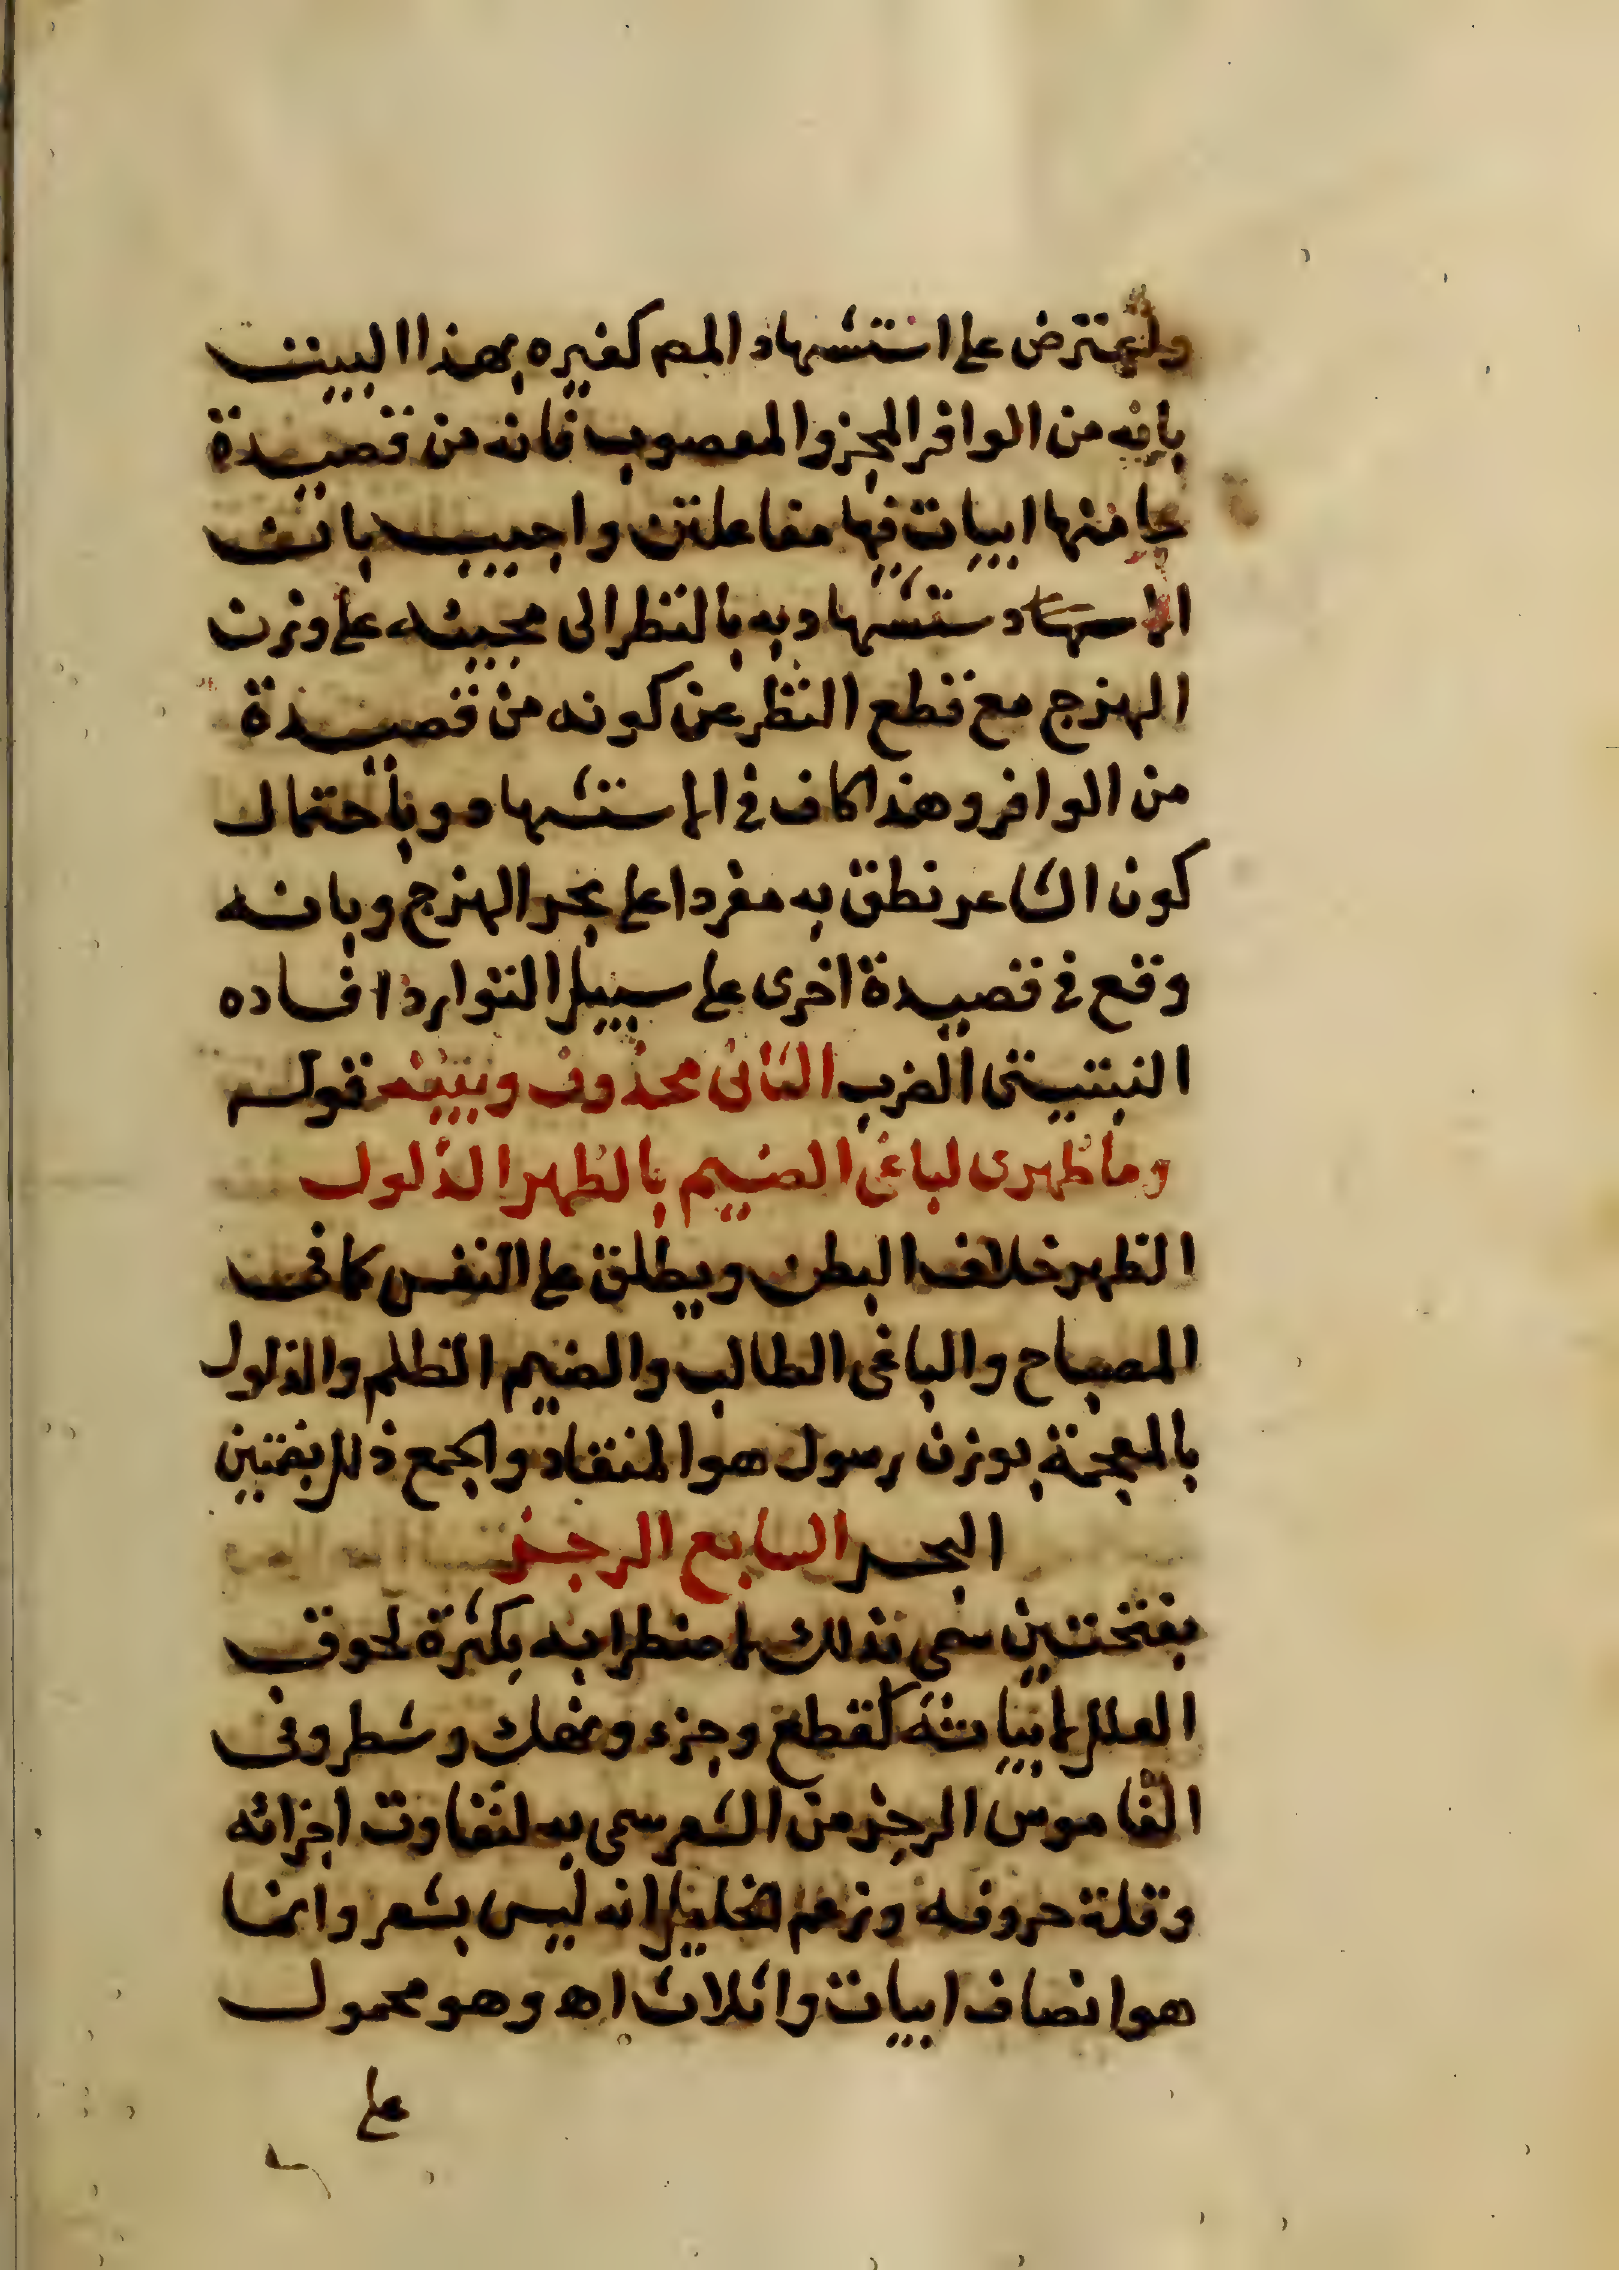 واعترض على استشهاد المص كغيره بهذا البيت
بانه من الوافر المجزو المعصوب فانه من قصيدة
جا منها ابيات فيها مفاعلتن واجيب بان
الاستشهاد به بالنظر الى مجيئه على وزن
الهزج مع قطع النظر عن كونه من قصيدة
من الوافر وهذا كاف في الاستشهاد وباحتمال
كون الشاعر نطق به مفردا على بحر الهزج وبانه
وقع في قصيدة اخرى على سبيل التوارد افاده
النبتيتى الضرب الثانى محذوف وبيته قوله
وما ظهرى لباغى الضيم بالظهر الذلول
الظهر خلاف البطن ويطلق على النفس كما فى
المصباح والباغى الطالب والضيم الظلم والذلول
بالمعجمة بوزن رسول هو المنقاد والجمع ذلل بضمتين
البحر السابع الرجز
بفتحتين سمى بذلك لاضطرابه بكثرة لحوق
العلل لابياته كقطع وجزء ونهك وشطر وفى
القاموس الرجز من الشعر سمى به لتفاوت اجزائه
وقلة حروفه وزعم الخليل انه ليس بشعر وانما
هو انصاف ابيات واثلاث اه وهو محمول
على